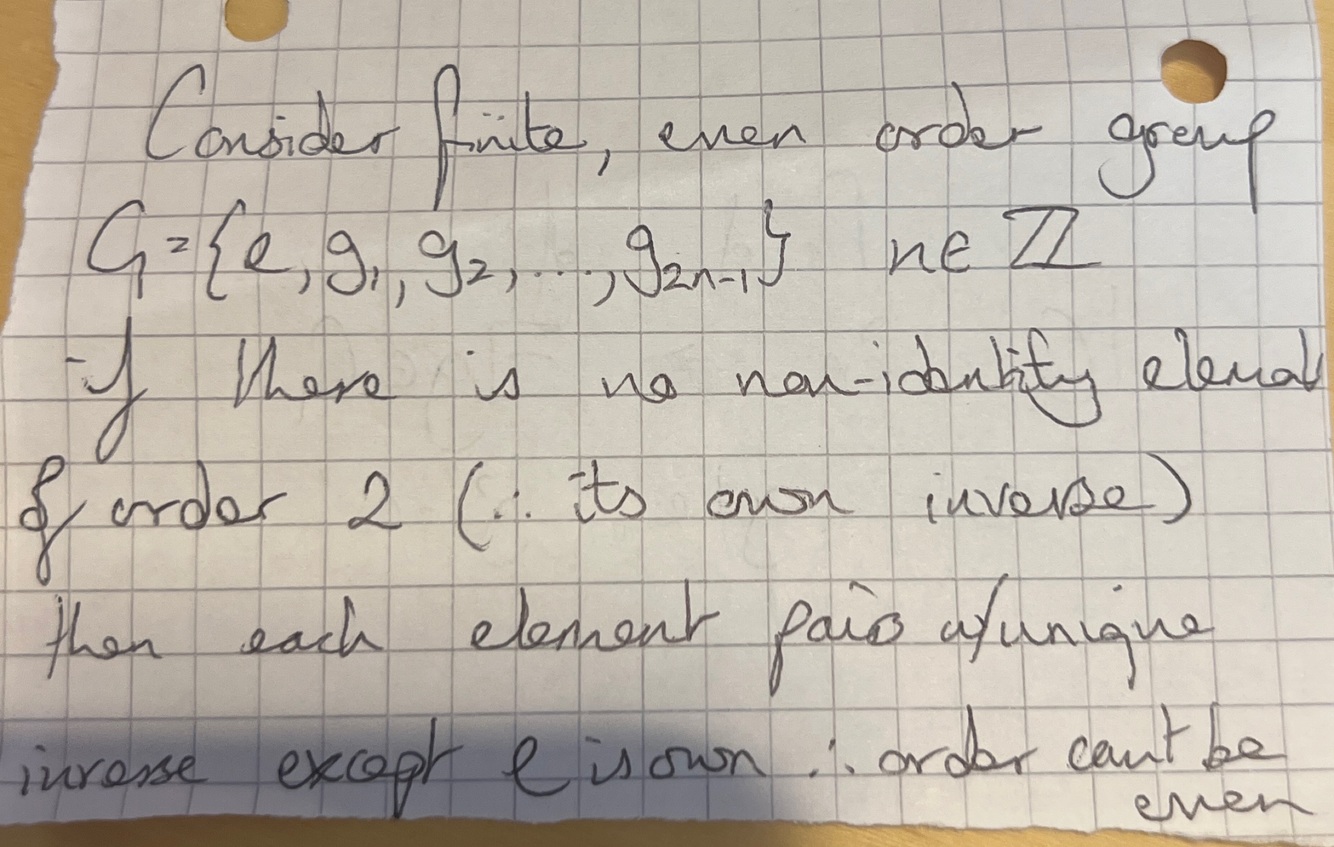 Consider finite, even order group
G={e, g₁, g₂, ..., g₂ₙ₋₁} n∈ℤ
If there is no non-identity element
of order 2 (∴ its own inverse)
then each element pairs w/unique
inverse except e is own ∴ order cant be
even